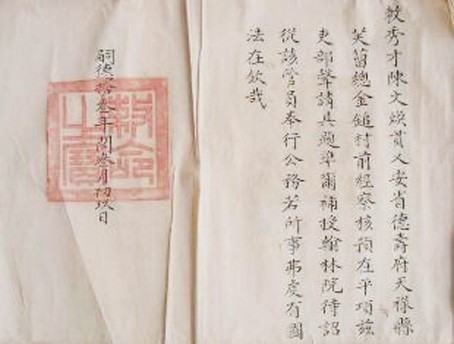 敕秀才陳文煥貫乂安省德壽府天祿縣
芙蒥總金鎚村前經察核預在平項茲
吏部聲請具題準爾補授翰林院待詔
從該管員奉行公務若所事弗虔有國
法在欽哉
嗣德拾叁年閏叁月初玖日
敕命之寶